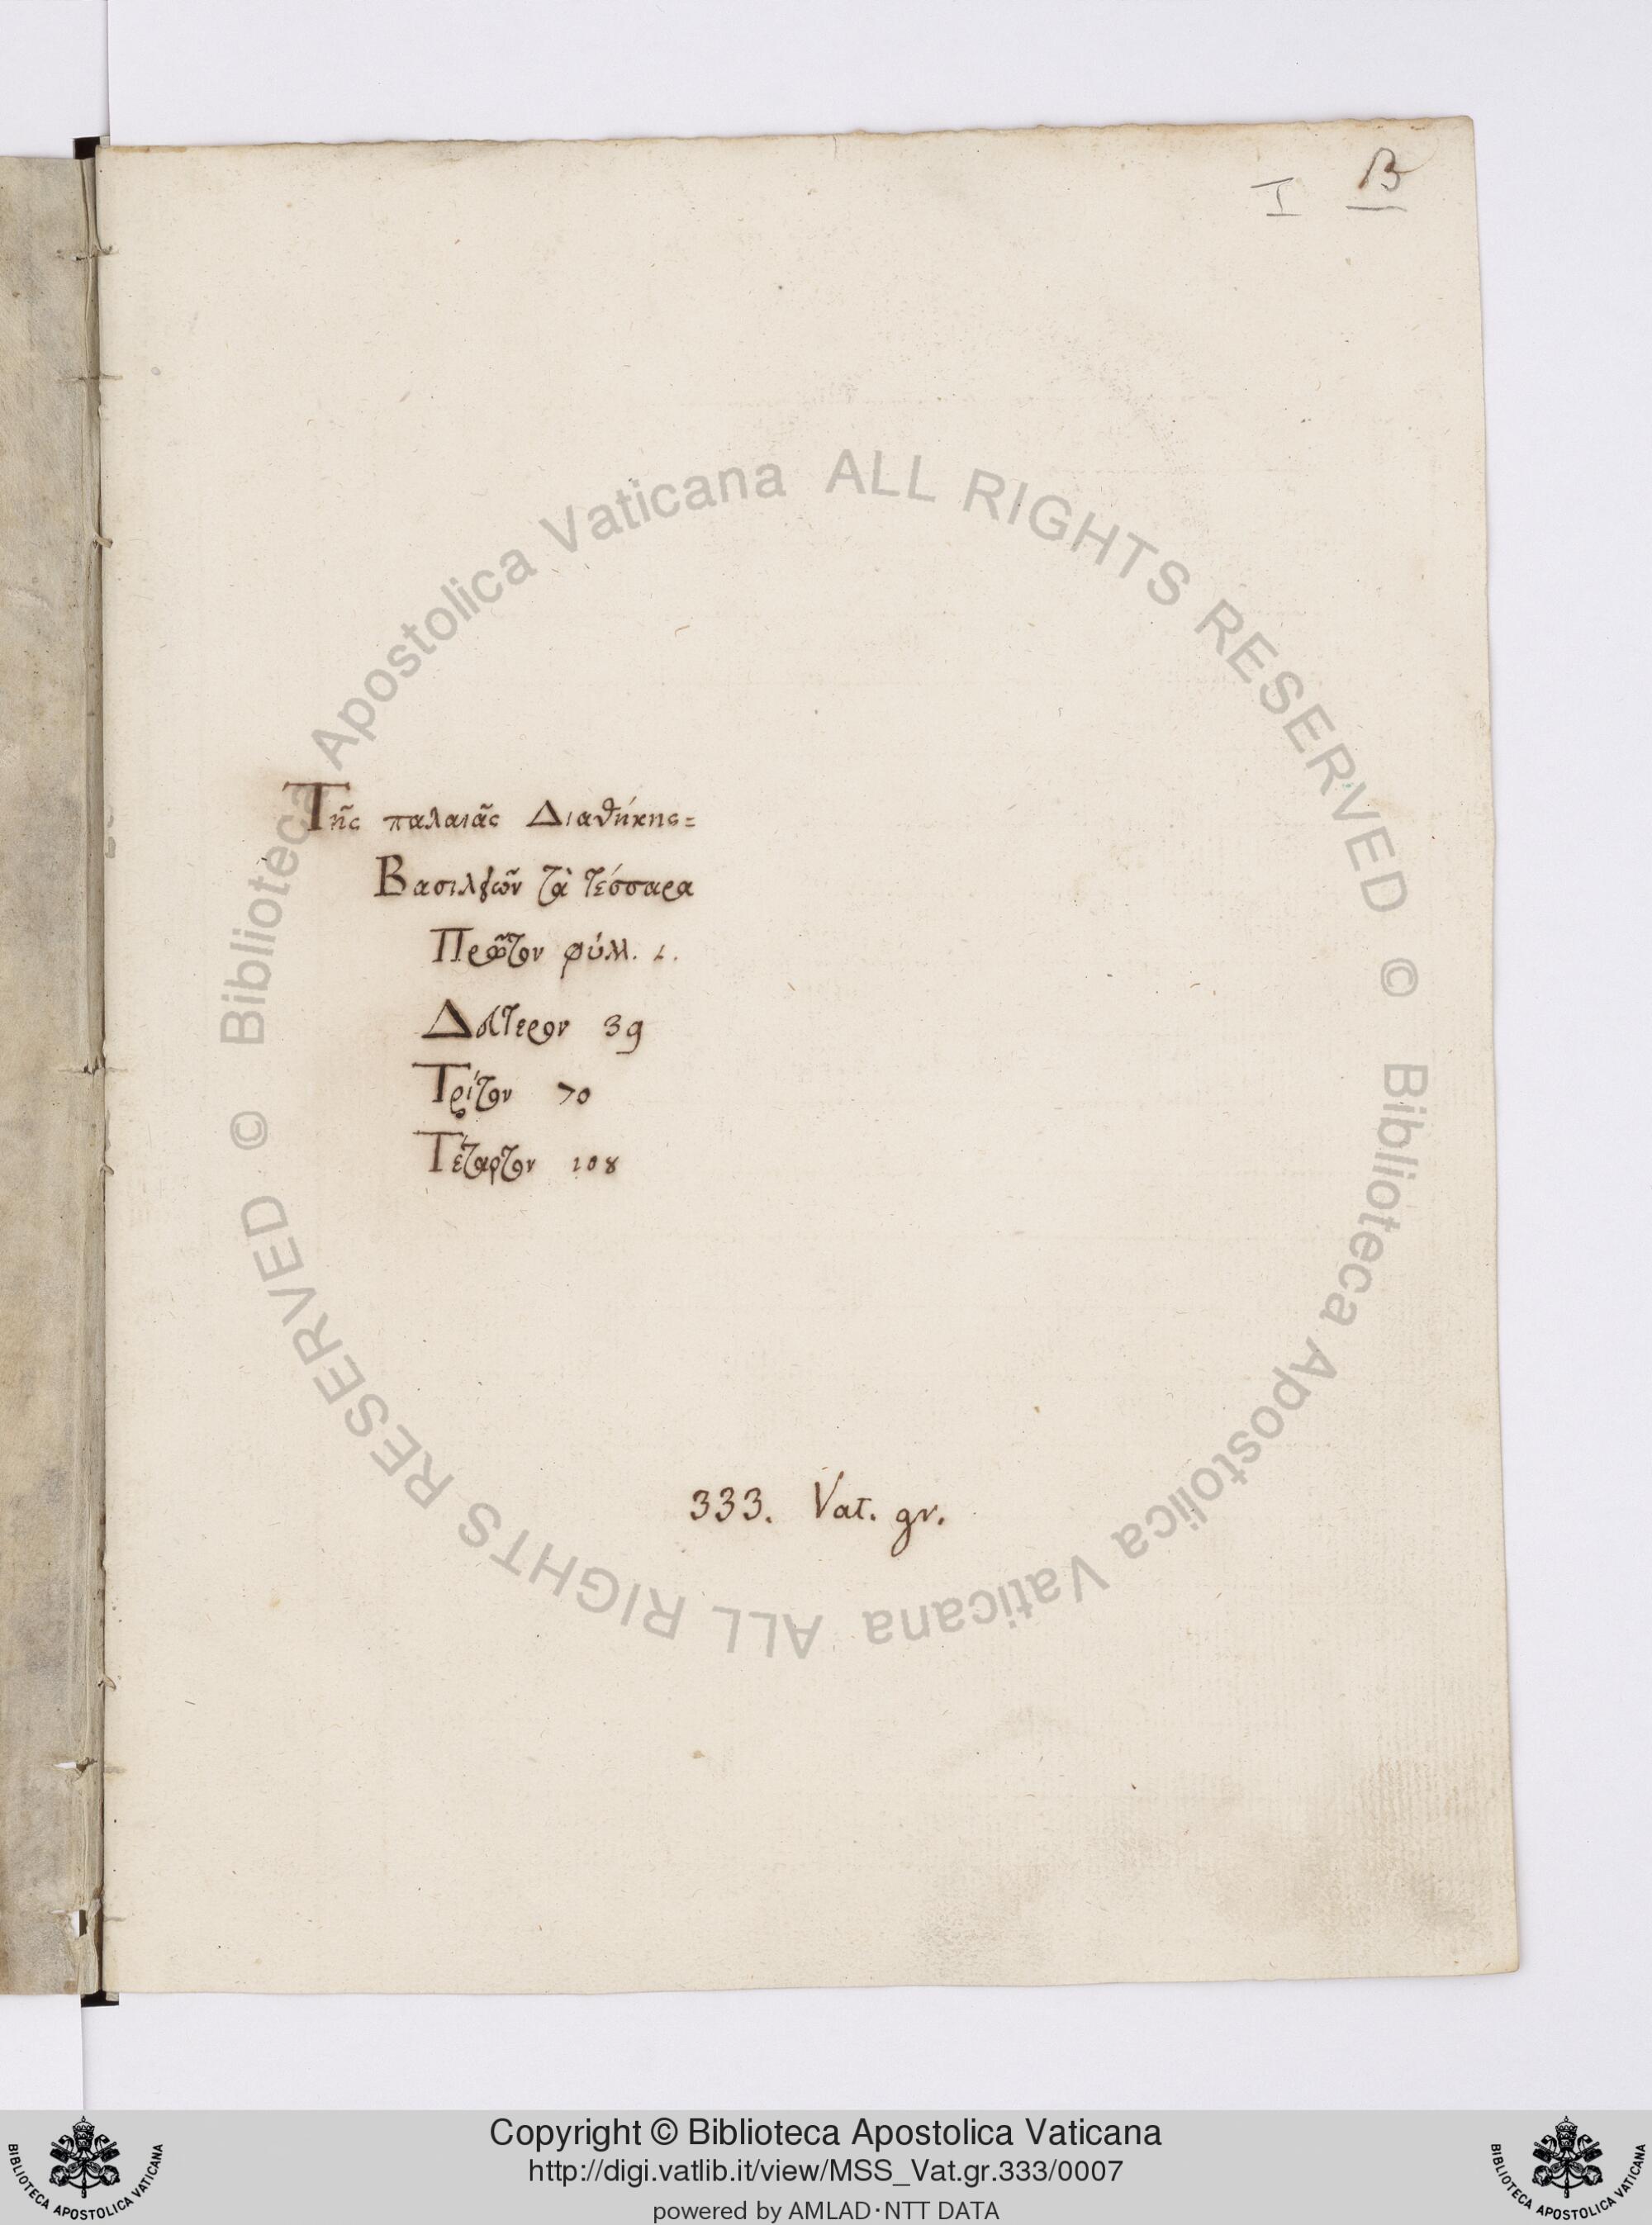 I B
Τῆς παλαιᾶς Διαθήκης=
Βασιλειῶν τὰ τέσσαρα
Πρῶτον φύλλ. 1.
Δεύτερον 39
Τρίτον 70
Τέταρτον 108
333. Vat. gr.
© Biblioteca Apostolica Vaticana ALL RIGHTS RESERVED
© Biblioteca Apostolica Vaticana ALL RIGHTS RESERVED
Copyright © Biblioteca Apostolica Vaticana
http://digi.vatlib.it/view/MSS_Vat.gr.333/0007
powered by AMLAD·NTT DATA
BIBLIOTECA APOSTOLICA VATICANA
BIBLIOTECA APOSTOLICA VATICANA